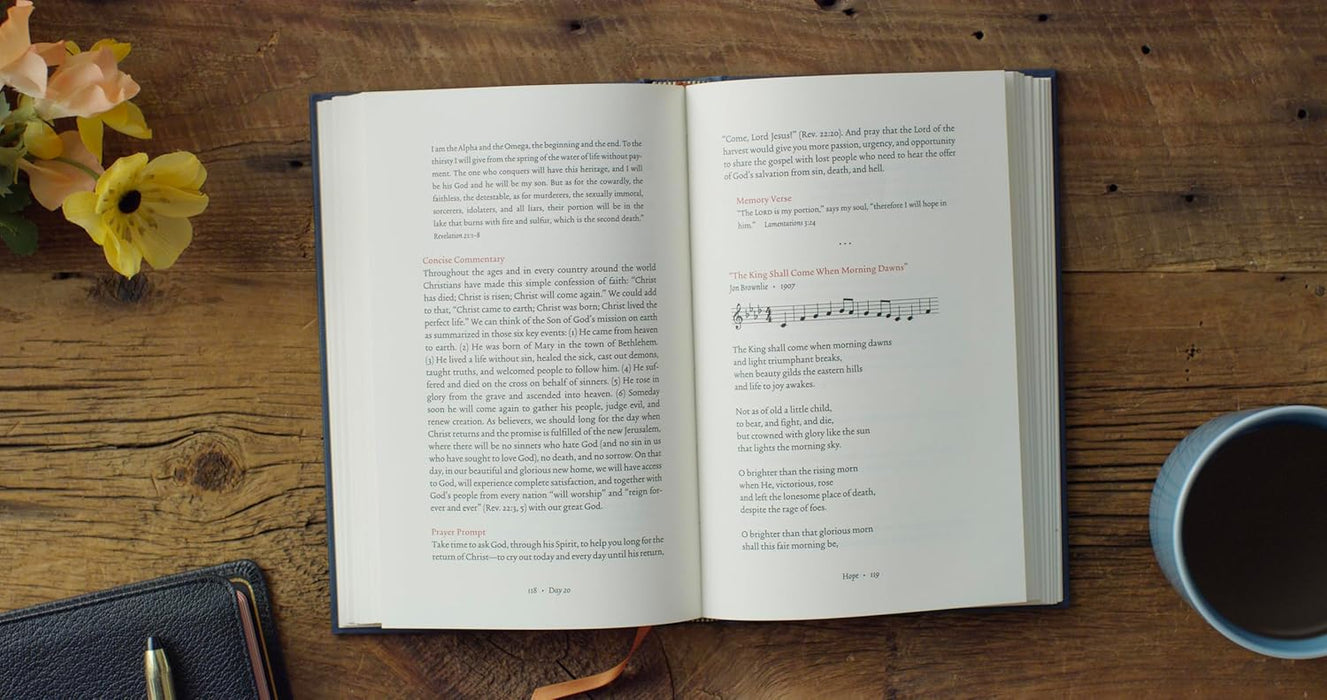 I am the Alpha and the Omega, the beginning and the end. To the
thirsty I will give from the spring of the water of life without pay-
ment. The one who conquers will have this heritage, and I will
be his God and he will be my son. But as for the cowardly, the
faithless, the detestable, as for murderers, the sexually immoral,
sorcerers, idolaters, and all liars, their portion will be in the
lake that burns with fire and sulfur, which is the second death."
Revelation 21:1–8
Concise Commentary
Throughout the ages and in every country around the world
Christians have made this simple confession of faith: "Christ
has died; Christ is risen; Christ will come again." We could add
to that, "Christ came to earth; Christ was born; Christ lived the
perfect life." We can think of the Son of God's mission on earth
as summarized in those six key events: (1) He came from heaven
to earth. (2) He was born of Mary in the town of Bethlehem.
(3) He lived a life without sin, healed the sick, cast out demons,
taught truths, and welcomed people to follow him. (4) He suf-
fered and died on the cross on behalf of sinners. (5) He rose in
glory from the grave and ascended into heaven. (6) Someday
soon he will come again to gather his people, judge evil, and
renew creation. As believers, we should long for the day when
Christ returns and the promise is fulfilled of the new Jerusalem,
where there will be no sinners who hate God (and no sin in us
who have sought to love God), no death, and no sorrow. On that
day, in our beautiful and glorious new home, we will have access
to God, will experience complete satisfaction, and together with
God's people from every nation "will worship" and "reign for-
ever and ever" (Rev. 22:3, 5) with our great God.
Prayer Prompt
Take time to ask God, through his Spirit, to help you long for the
return of Christ—to cry out today and every day until his return,
118 • Day 20
"Come, Lord Jesus!" (Rev. 22:20). And pray that the Lord of the
harvest would give you more passion, urgency, and opportunity
to share the gospel with lost people who need to hear the offer
of God's salvation from sin, death, and hell.
Memory Verse
"The LORD is my portion," says my soul, "therefore I will hope in
him." Lamentations 3:24
• • •
"The King Shall Come When Morning Dawns"
Jon Brownlie • 1907
The King shall come when morning dawns
and light triumphant breaks,
when beauty gilds the eastern hills
and life to joy awakes.
Not as of old a little child,
to bear, and fight, and die,
but crowned with glory like the sun
that lights the morning sky.
O brighter than the rising morn
when He, victorious, rose
and left the lonesome place of death,
despite the rage of foes.
O brighter than that glorious morn
shall this fair morning be,
Hope • 119